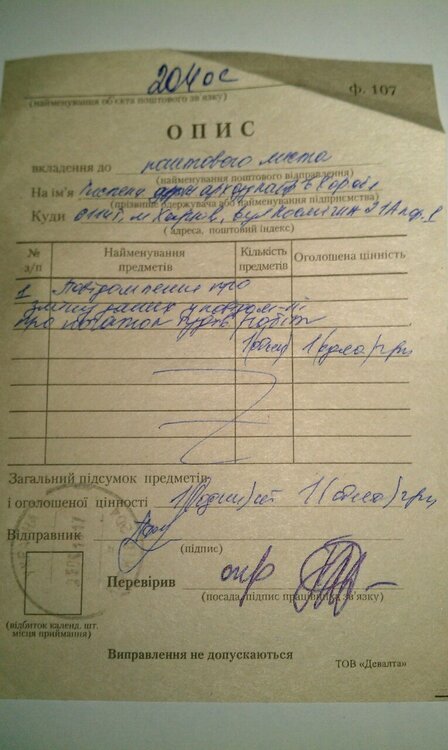 204 ос
ф. 107
(найменування об'єкта поштового зв'язку)
ОПИС
вкладення до поштового листа
(найменування поштового відправлення)
На ім'я
(прізвище одержувача або найменування підприємства)
Куди м. Харків, вул
( адреса, поштовий індекс)
№ з/п Найменування предметів Кількість предметів Оголошена цінність
1 Повідомлення про
зміну даних у повідом-ні
про початок буд. робіт
1(один) 1(одна) грн
Загальний підсумок предметів
і оголошеної цінності 1(один) 1(одна) грн
Відправник
(підпис)
Перевірив опр
(посада, підпис працівника зв'язку)
(відбиток календ. шт.
місця приймання)
Виправлення не допускаються
ТОВ «Девалта»